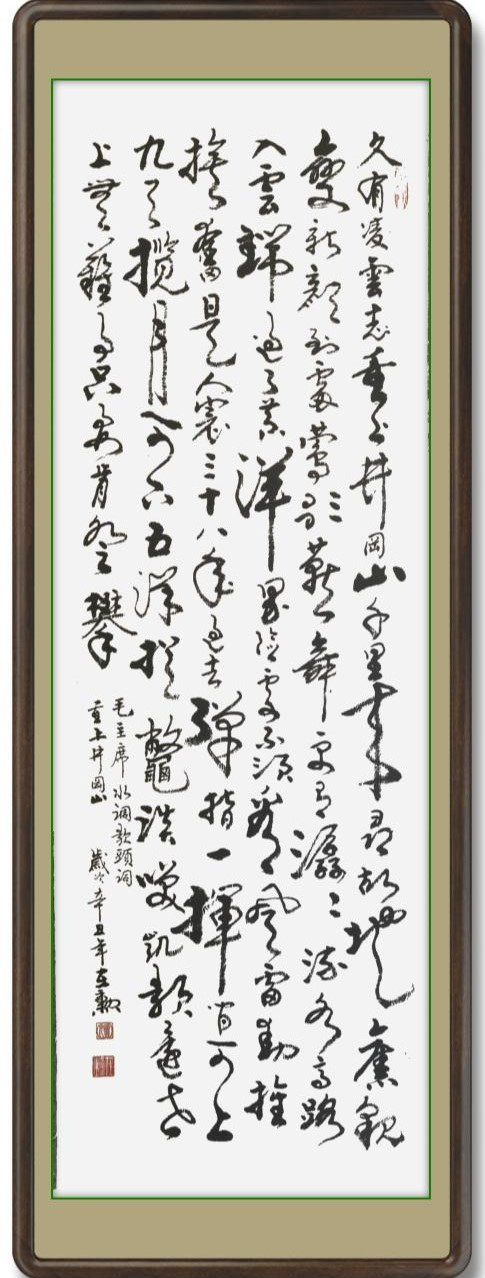 久有凌雲志重上井岡山千里来尋故地舊貌
變新顏到處鶯歌燕舞更有潺々流水高路
入雲端過了黄洋界險處不須看風雷動旌
旗奮是人寰三十八年過去彈指一揮間可上
九天揽月可下五洋捉鼈談笑凱歌還世
上無難事只要肯登攀
毛主席水调歌頭詞
重上井岡山 歲次辛丑年